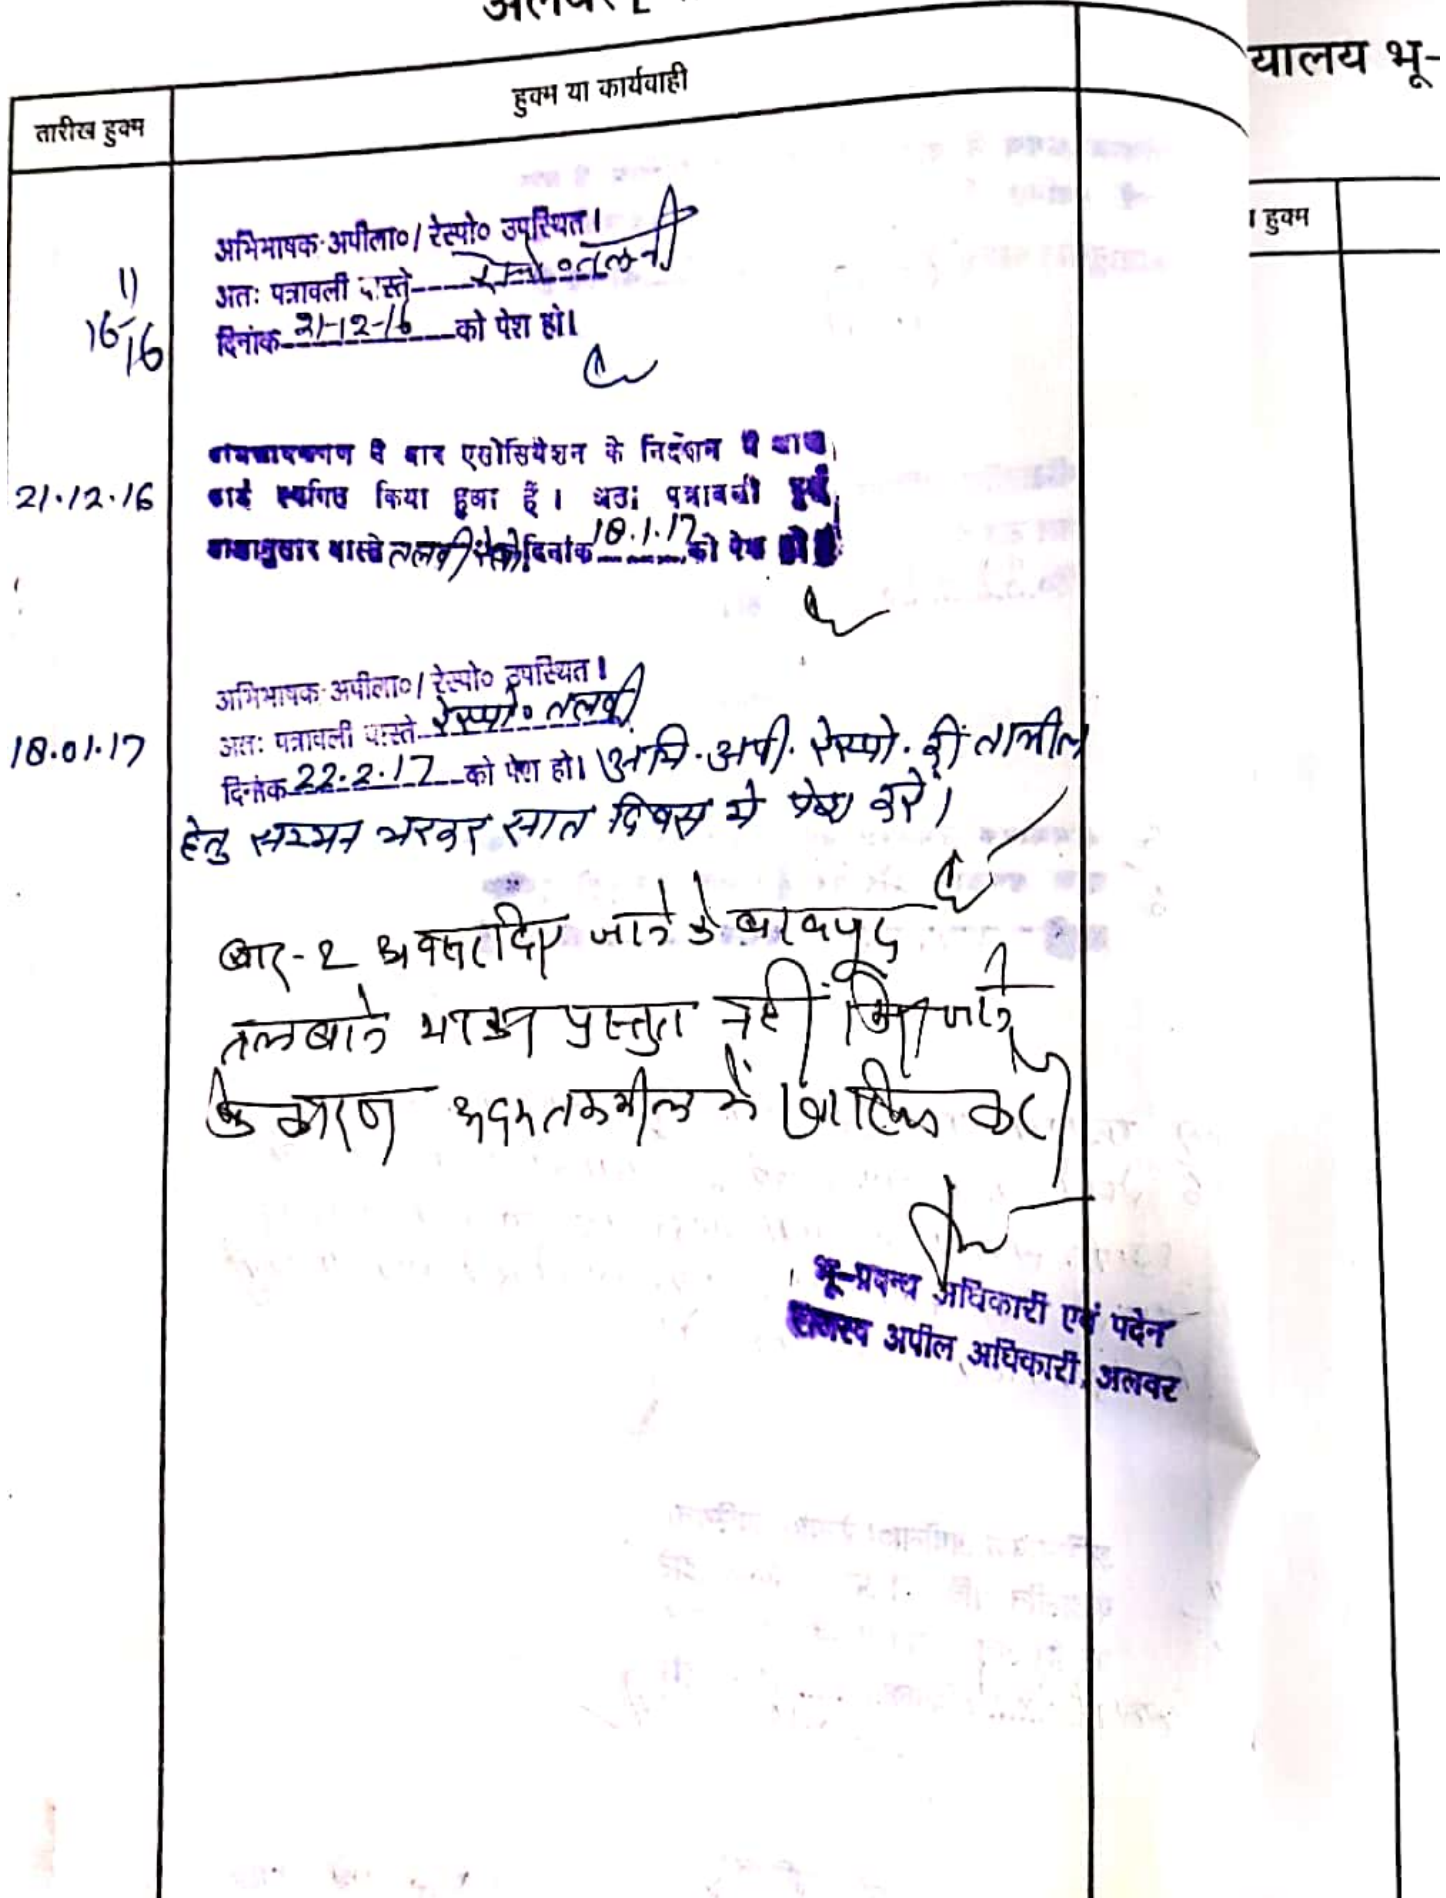 अलवर [
यालय भू-
तारीख हुक्म
हुक्म या कार्यवाही
हुक्म
अभिभाषक अपीला०/ रेस्पो० उपस्थित।
अतः पत्रावली वास्ते रेस्पो० तलबी
दिनांक 21-12-16 को पेश हो।
16/11/16
21.12.16
ने बार एसोसियेशन के निर्देशन में
कार्य स्थगित किया हुआ है। अतः पत्रावली पूर्व
आज्ञानुसार वास्ते तलबी रेस्पो. दिनांक 18.1.17 को पेश हो
18.01.17
अभिभाषक अपीला०/ रेस्पो० उपस्थित।
अतः पत्रावली वास्ते रेस्पो० तलबी
दिनांक 22.2.17 को पेश हो। अभि. अपी. रेस्पो. की तामील
हेतु सम्मन भरकर सात दिवस में पेश करें।
बार-२ अवसर दिए जाने के बावजूद
तलबाने प्रस्तुत नहीं किए जाने
के कारण अदम तकमील में खारिज
भू-प्रबन्ध अधिकारी एवं पदेन
राजस्व अपील अधिकारी, अलवर